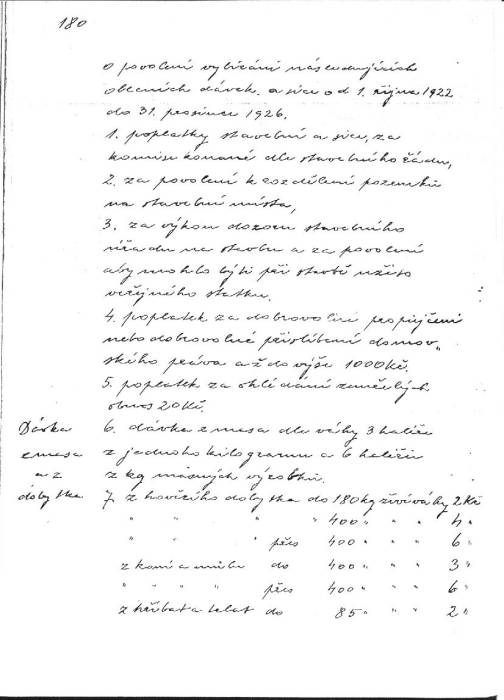 180
o povolení vybírání následujících
obecních dávek. a sice od 1. října 1922
do 31. prosince 1926.
1. poplatky stavební a sice, za
komise konané dle stavebního řádu,
2. za povolení k rozdělení pozemků
na stavební místa,
3. za výkon dozoru stavebního
úřadu na stavbu a za povolení
aby mohlo býti při stavbě užito
veřejného statku.
4. poplatek za dobrovolné propůjčení
nebo dobrovolné přislíbení domov„
ského práva až do výše 1000 Kč.
5. poplatek za ohledání zemřelých
obnos 20 Kč.
Dávka 6. dávka z masa dle váhy 3 haléře
z masa z jednoho kilogramu a 6 haléřů
a z z kg masných výrobků.
dobytka 7. z hovězího dobytka do 180 kg živé váhy 2 Kč
" " " " 400 " " " 4 "
" " " přes 400 " " " 6 "
z koní a mulů do 400 " " " 3 "
" " " " přes 400 " " " 6 "
z hříbat a telat do 85 " " " 2 "